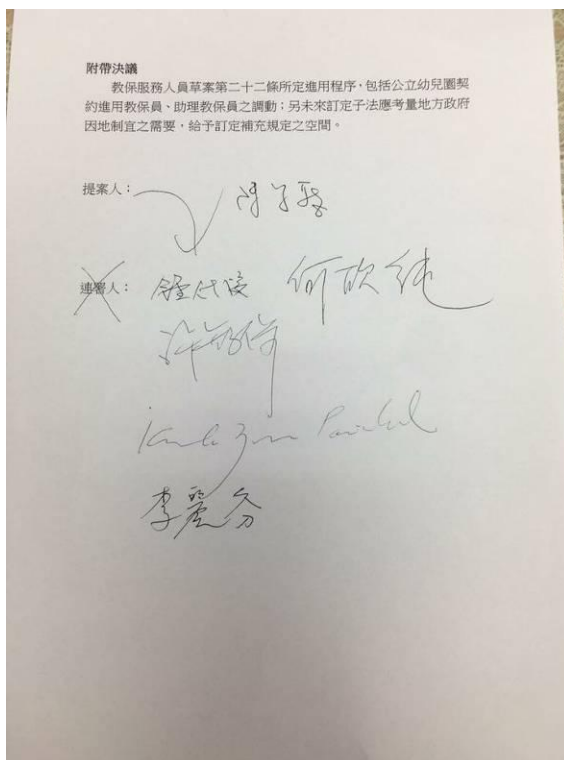 附帶決議
教保服務人員草案第二十二條所定進用程序，包括公立幼兒園契
約進用教保員、助理教保員之調動；另未來訂定子法應考量地方政府
因地制宜之需要，給予訂定補充規定之空間。
提案人：
連署人： 何欣純
李麗芬